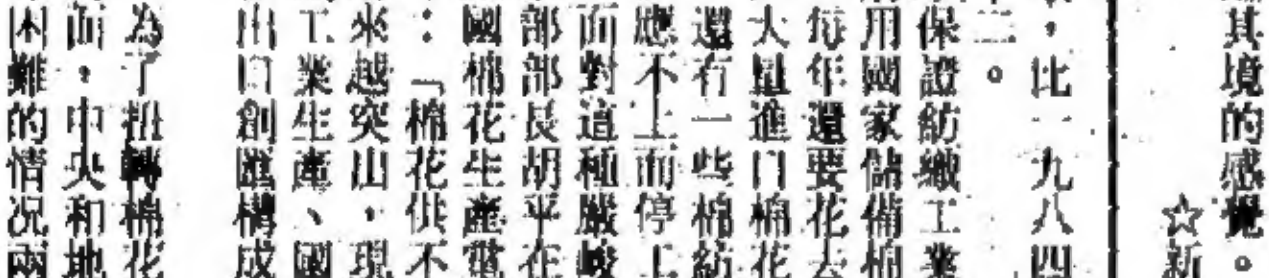 其境的感覺。
☆新
，比一九八四
二。
保證紡織工業
用國家儲備棉
每年還要花去
大量進口棉花
還有一些棉紡
應不上而停工
面對這種嚴峻
部部長胡平在
國棉花生產電
：「棉花供不
來越突出，現
工業生產、國
出口創匯構成
為了扭轉棉花
面，中央和地
困難的情況兩